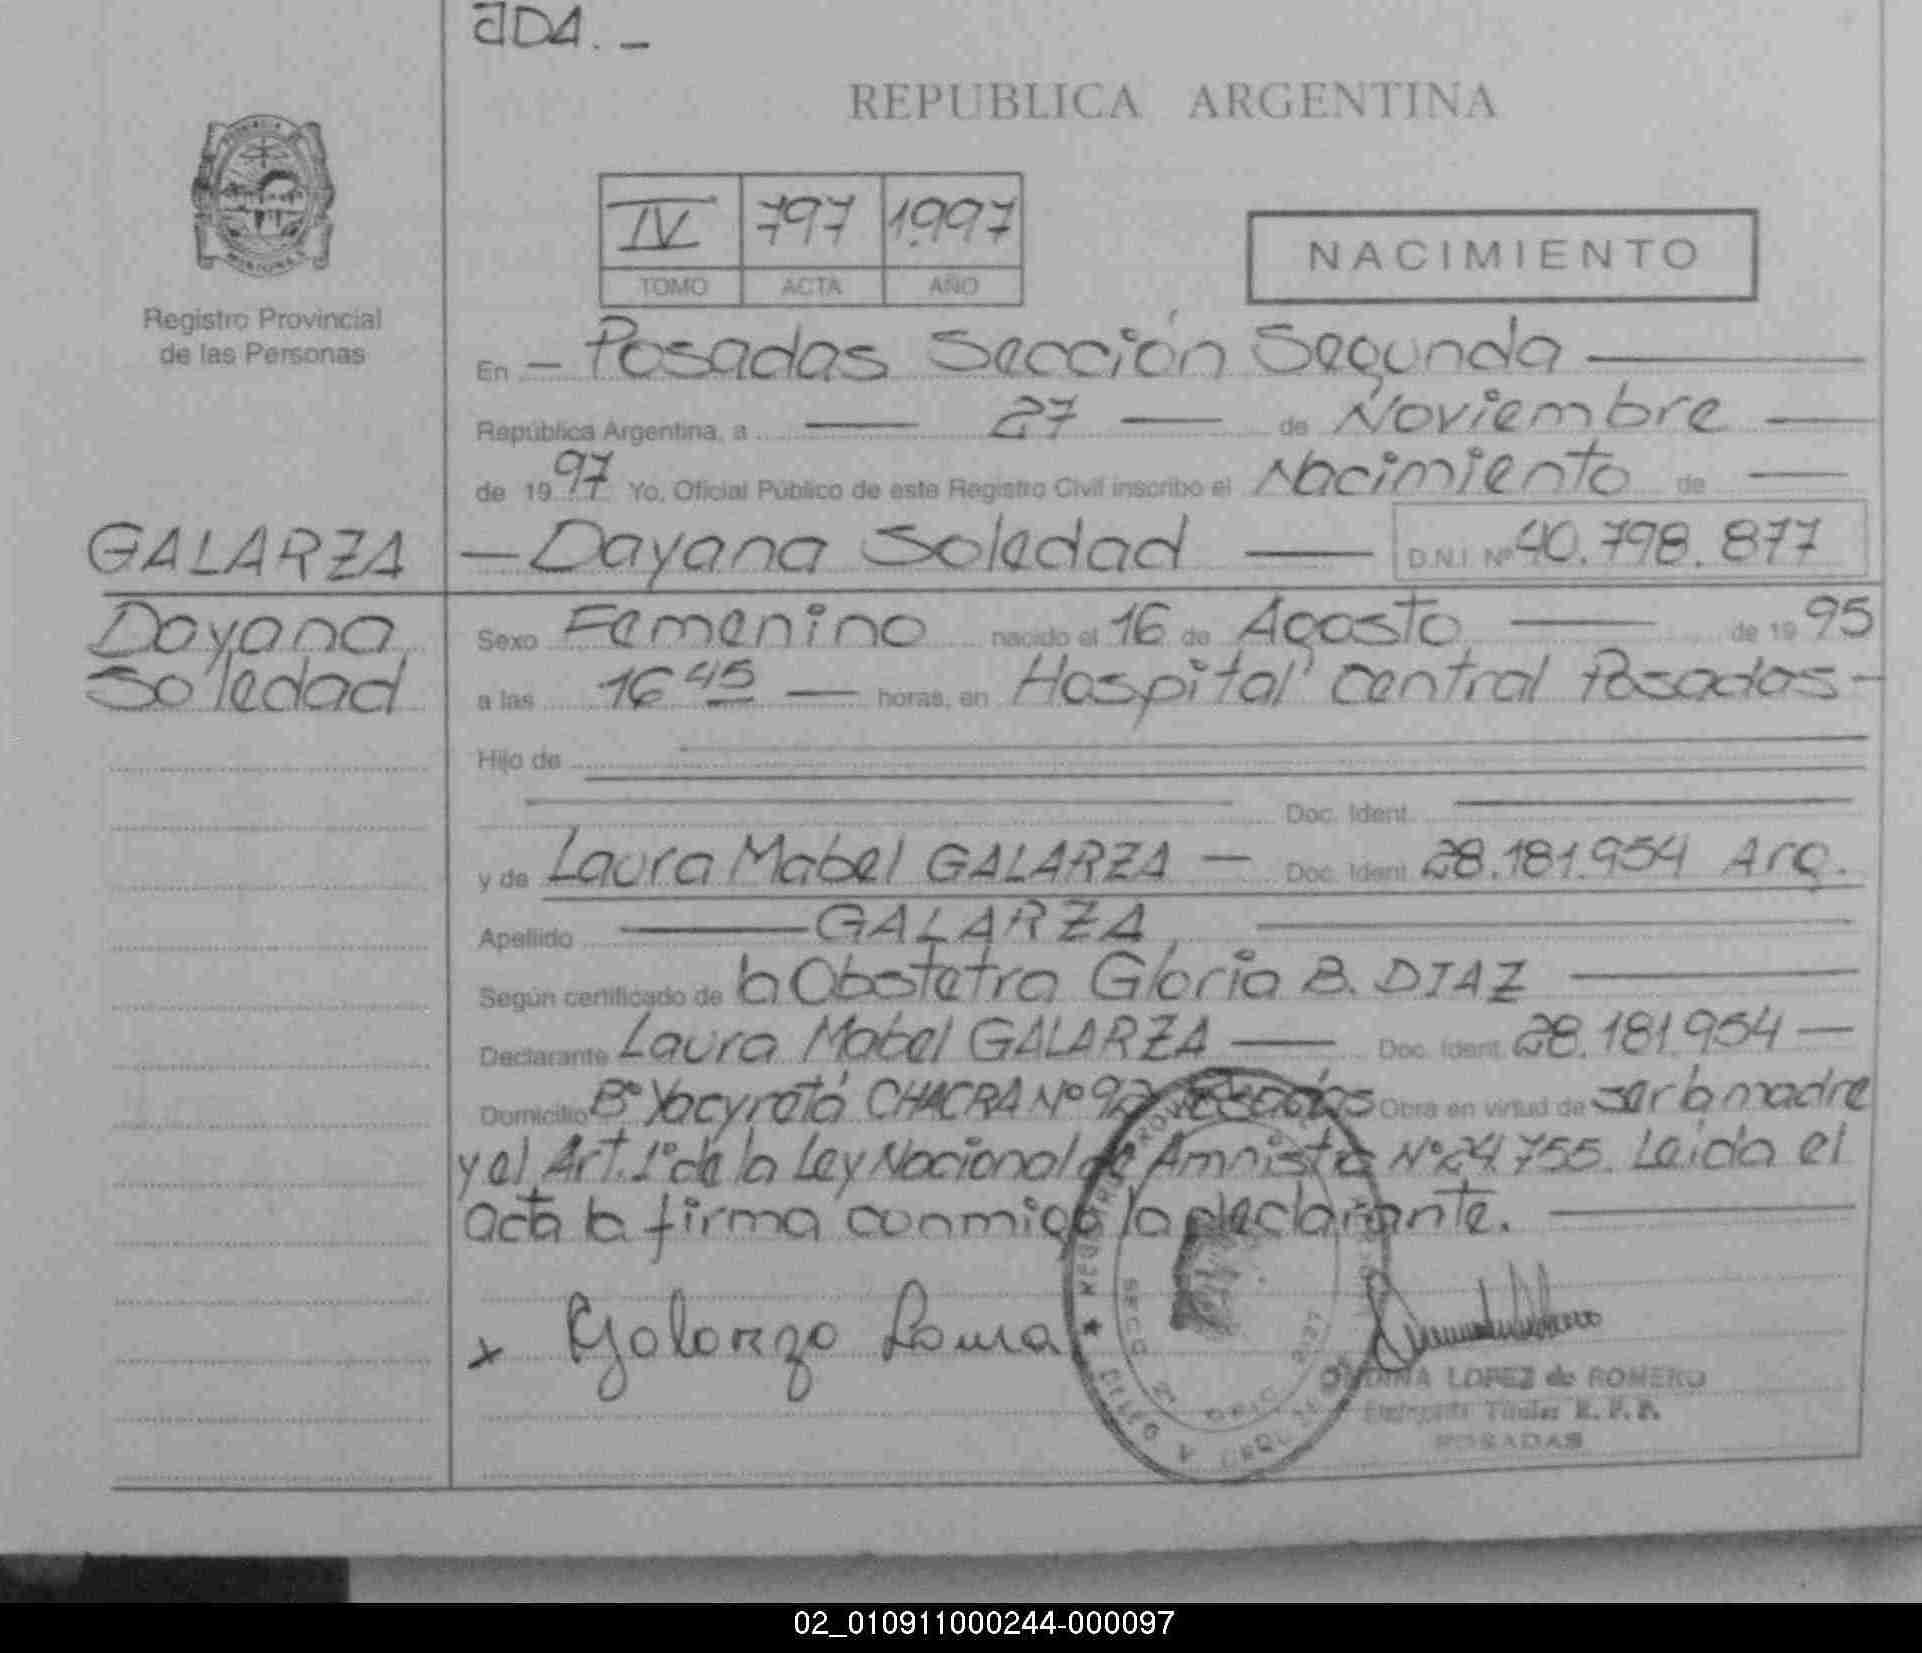 ADA. _
REPUBLICA ARGENTINA
IV 797 1.997
TOMO ACTA AÑO
NACIMIENTO
Registro Provincial
de las Personas
En — Posadas Sección Segunda —
República Argentina, a — 27 — de Noviembre —
de 19 97 Yo, Oficial Público de este Registro Civil inscribo el Nacimiento de —
GALARZA — Dayana Soledad — D.N.I. Nº 40.798.877
Dayana
Soledad
Sexo Femenino nacido el 16 de Agosto — de 19 95
a las 16 45 — horas, en Hospital Central Posadas -
Hijo de
Doc. Ident.
y de Laura Mabel GALARZA — Doc. Ident. 28.181.954 Arg.
Apellido — GALARZA
Según certificado de la Obstetra Gloria B. DIAZ —
Declarante Laura Mabel GALARZA — Doc. Ident. 28.181.954 —
Domicilio Bº Yacyretá CHACRA Nº 92 Posadas Obra en virtud de ser la madre
y el Art. 1º de la Ley Nacional de Amnistía Nº 24.755. Leida el
acta la firma conmigo la declarante. —
x Galarza Laura
LOPEZ de ROMERO
Titular R. P. P.
POSADAS
02_010911000244-000097